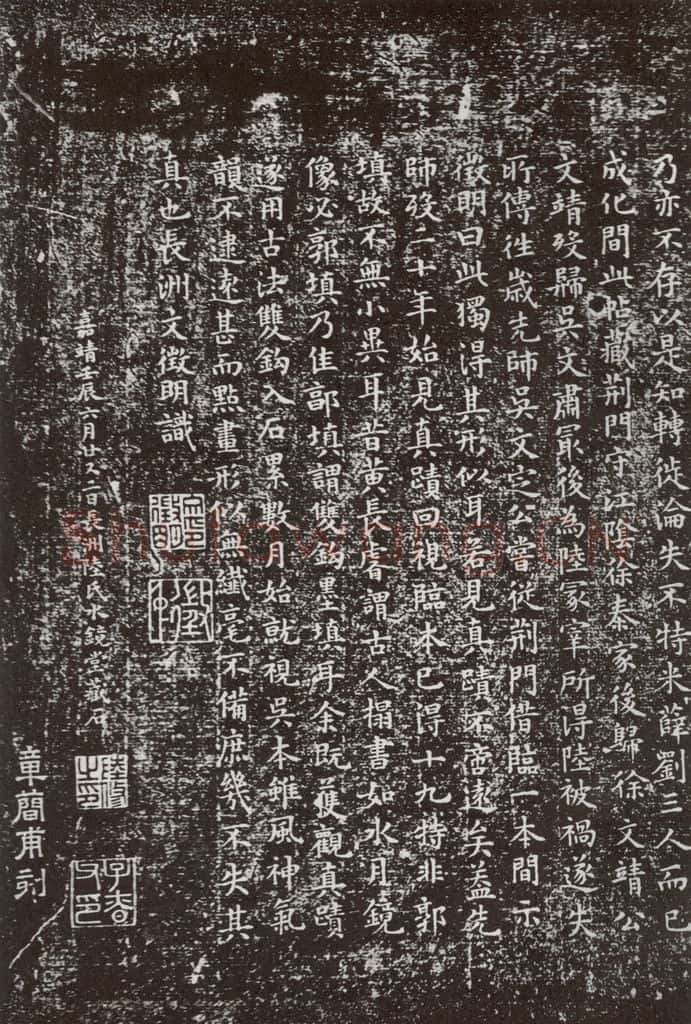 乃亦不存以是知轉徙淪失不特米薛劉三人而已
成化間此帖藏荆門守江陰徐泰家後歸徐文靖公
文靖歿歸吳文肅冣後為陸冢宰所得陸被禍遂失
所傳往歲先師吳文定公嘗從荆門借臨一本間示
徵明曰此獨得其形似耳若見真蹟不啻遠矣蓋先
師歿二十年始見真蹟回視臨本已得十九特非郭
填故不無小異耳昔黃長睿謂古人搨書如水月鏡
像必郭填乃佳郭填謂雙鈎墨填耳余既獲觀真蹟
遂用古法雙鈎入石累數月始就視吳本雖風神氣
韻不逮遠甚而點畫形似無纖毫不備庶幾不失其
真也長洲文徵明識
嘉靖壬辰六月廿又二日長洲陸氏水鏡堂藏石
章簡甫刻
Shufawang.CN